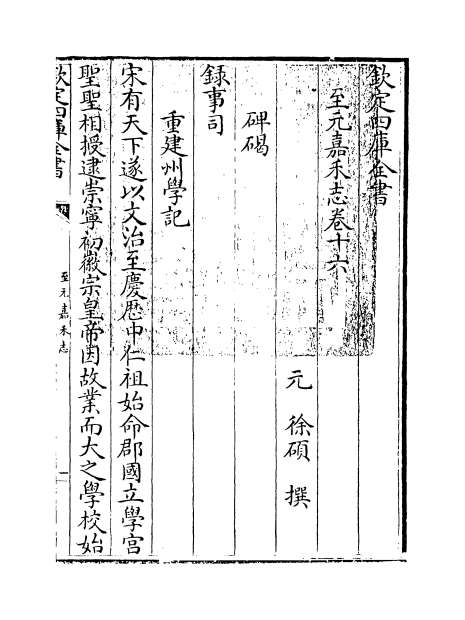 欽定四庫全書
至元嘉禾志卷十六
元　徐碩　撰
碑碣
録事司
重建州學記
宋有天下遂以文治至慶歴中仁祖始命郡國立學宫
聖聖相授逮崇寧初徽宗皇帝因故業而大之學校始
欽定四庫全書
至元嘉禾志
一